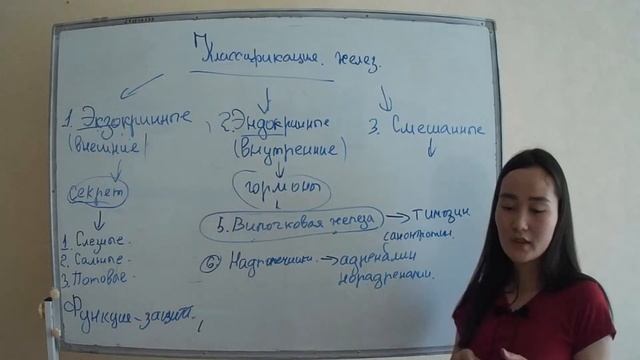 Классификация желез.
1. Экзокринные
(внешние)
секрет
1. Слезные.
2. Сальные.
3. Потовые.
Функция - защит.
2. Эндокринные
(внутренние)
гормоны
5. Вилочковая железа → тимозин
6 Надпочечники. → адреналин
норадреналин.
3. Смешанные